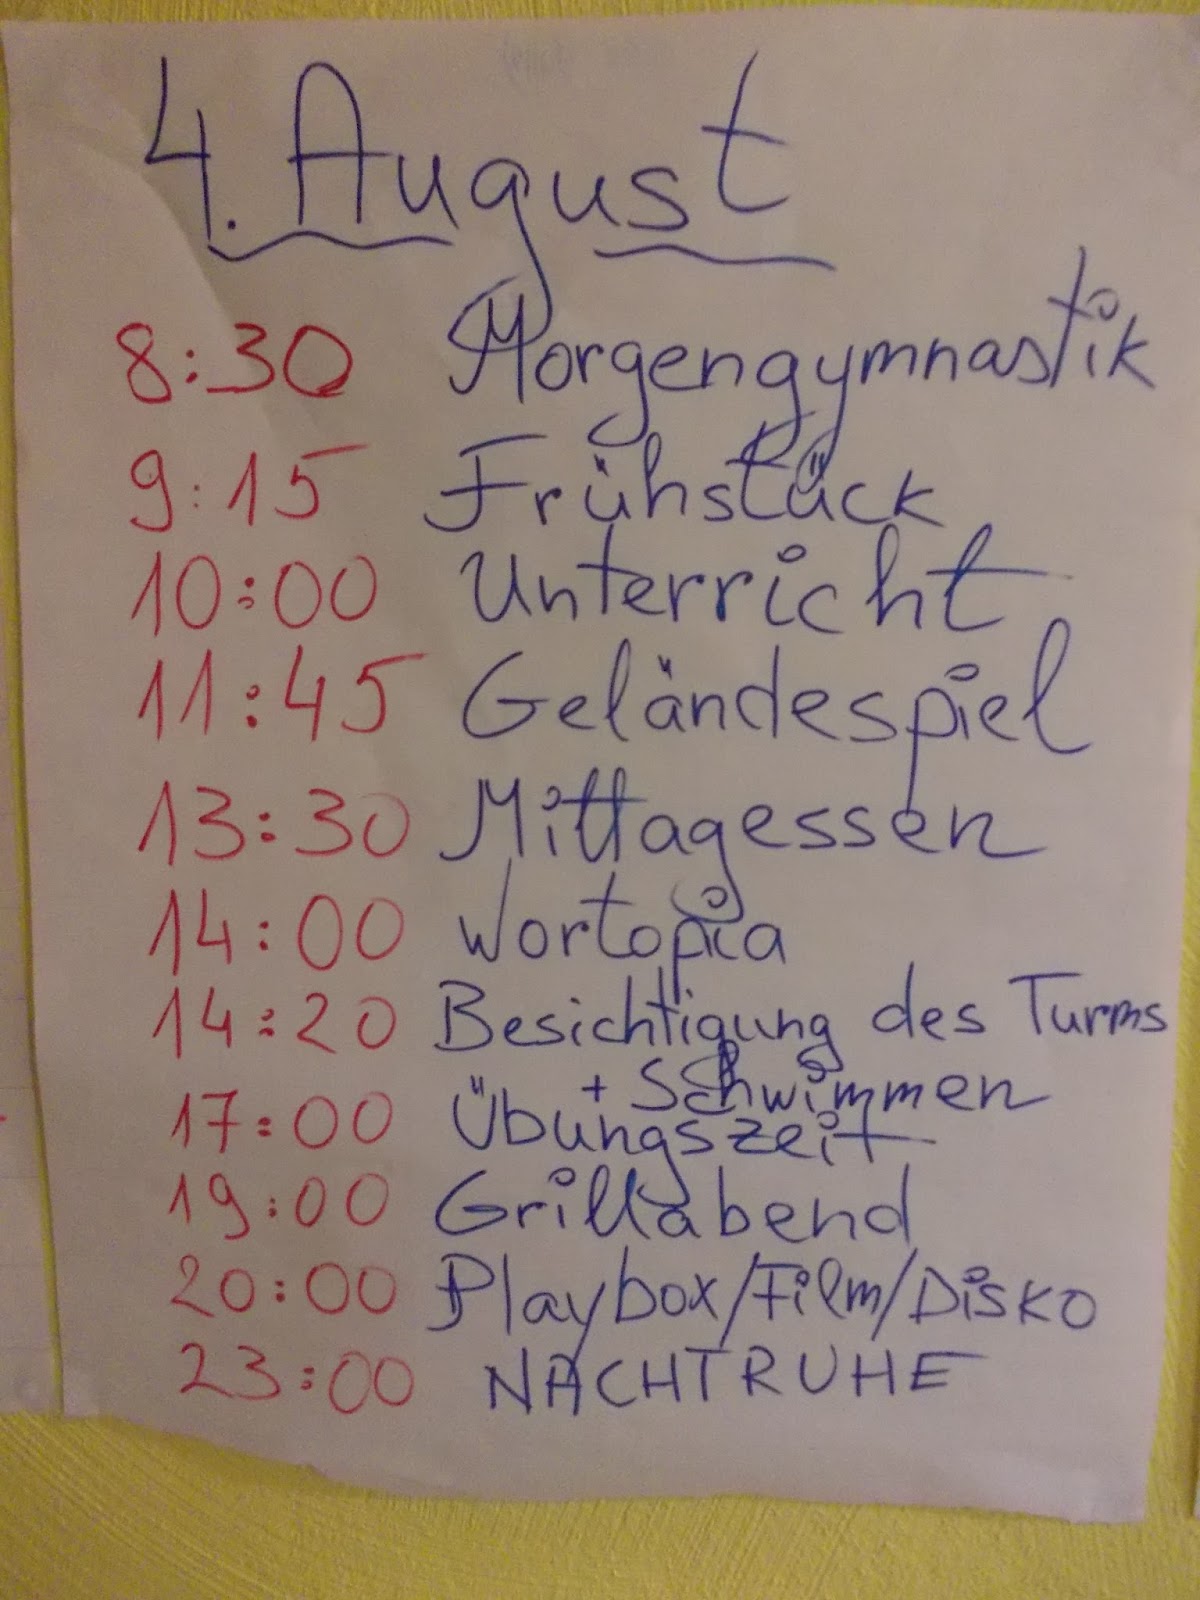 4. August
8:30 Morgengymnastik
9:15 Frühstück
10:00 Unterricht
11:45 Geländespiel
13:30 Mittagessen
14:00 Wortopia
14:20 Besichtigung des Turms
+ Schwimmen
17:00 Übungszeit
19:00 Grillabend
20:00 Playbox/Film/Disko
23:00 NACHTRUHE